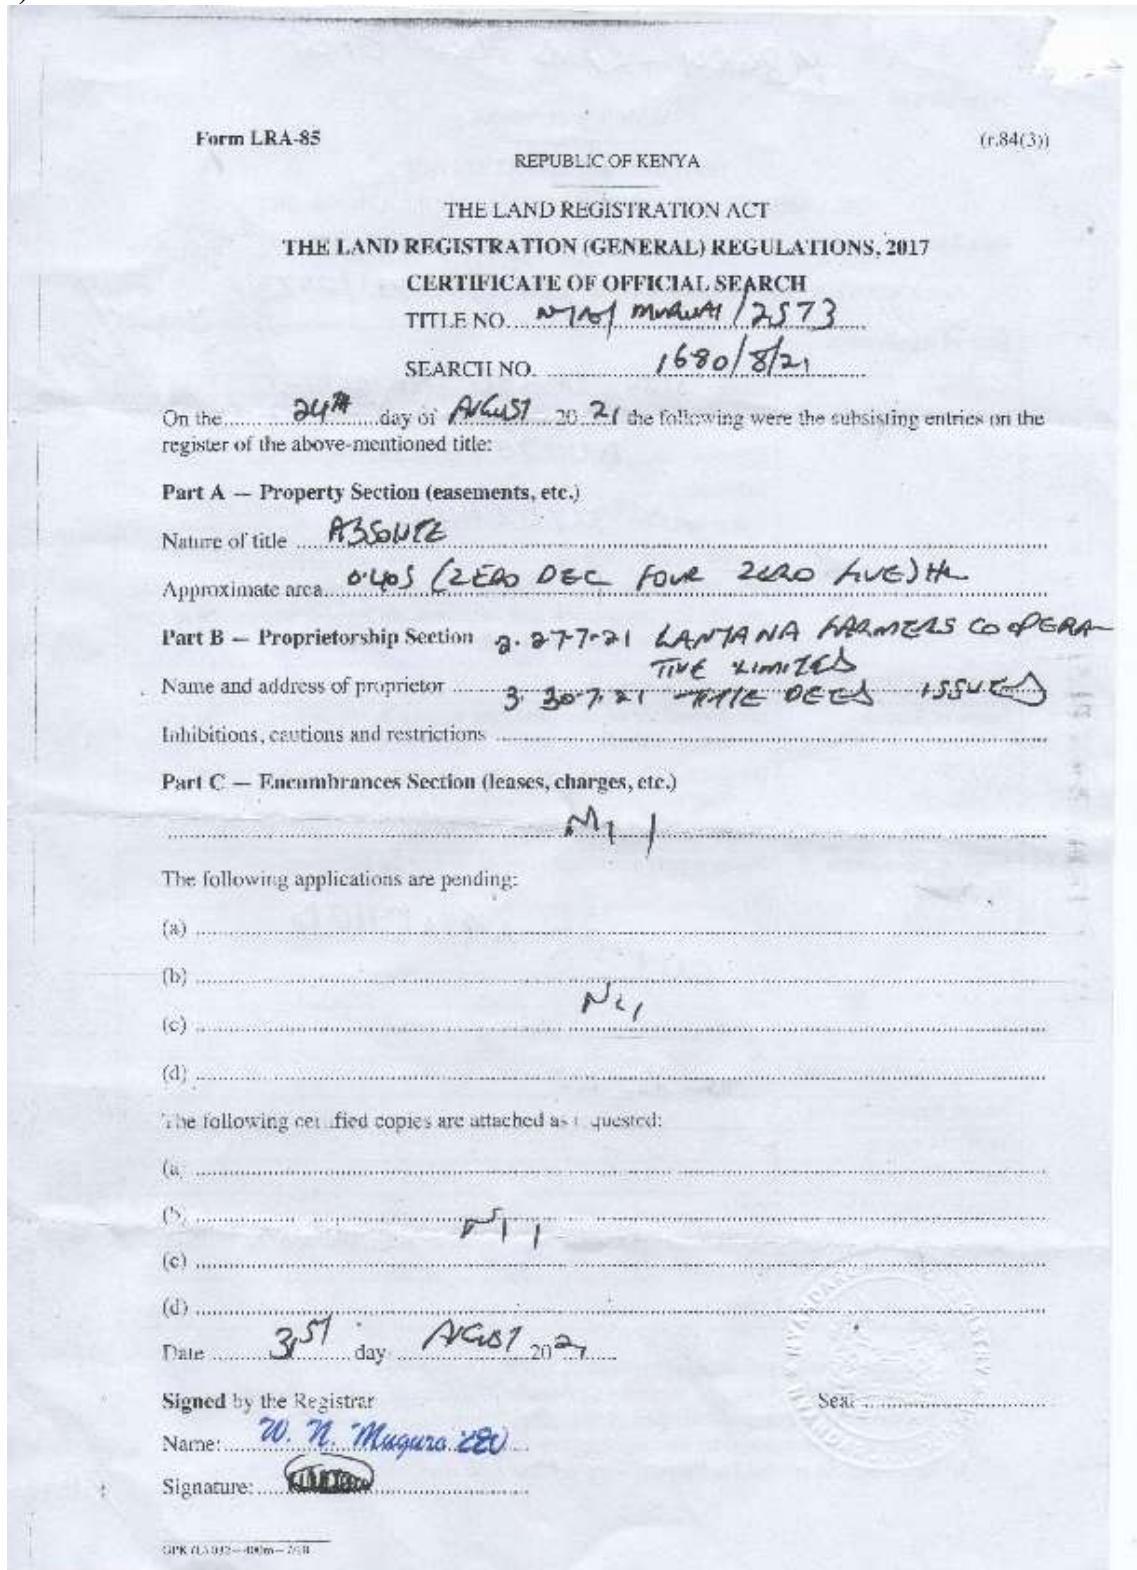 Form LRA-85 (r.84(3))
REPUBLIC OF KENYA
THE LAND REGISTRATION ACT
THE LAND REGISTRATION (GENERAL) REGULATIONS, 2017
CERTIFICATE OF OFFICIAL SEARCH
TITLE NO. /2573
SEARCH NO. 1680/8/21
On the 24TH day of AUGUST 20 21 the following were the subsisting entries on the
register of the above-mentioned title:
Part A — Property Section (easements, etc.)
Nature of title ABSOLUTE
Approximate area 0.405 (ZERO DEC FOUR ZERO FIVE) HA
Part B — Proprietorship Section 2. 27-7-21 LANTANA FARMERS COOPERA-
TIVE LIMITED
Name and address of proprietor 3. 30.7.21 TITLE DEED ISSUED
Inhibitions, cautions and restrictions
Part C — Encumbrances Section (leases, charges, etc.)
Nil
The following applications are pending:
(a)
(b)
Nil
(c)
(d)
The following certified copies are attached as requested:
(a)
(b)
Nil
(c)
(d)
Date 31ST day AUGUST 2021
Signed by the Registrar Seal
Name: W. N. Muguro
Signature: